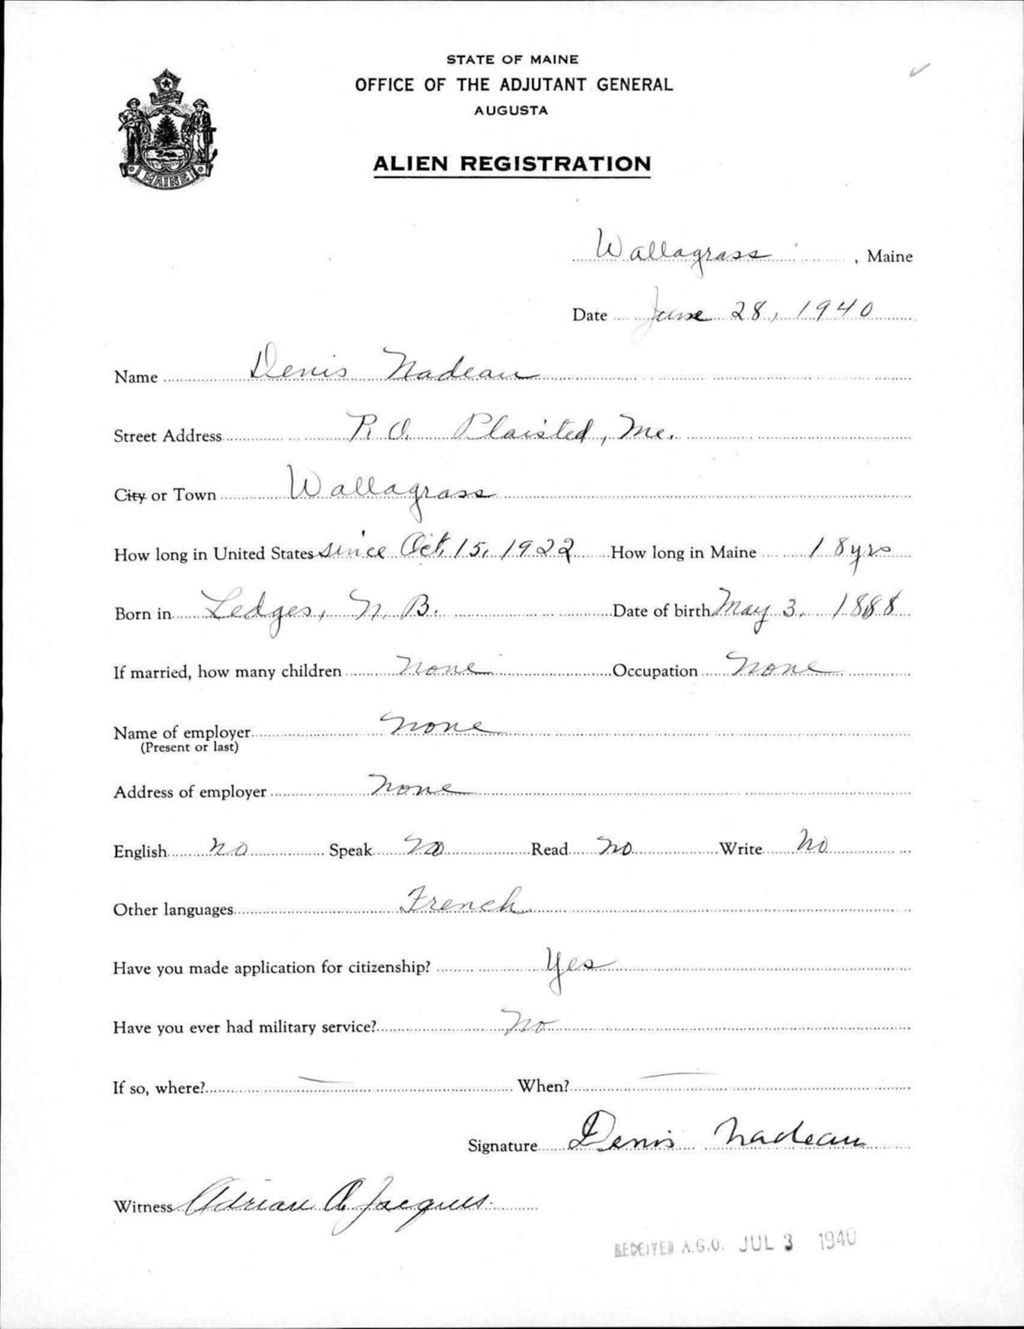 STATE OF MAINE
OFFICE OF THE ADJUTANT GENERAL
AUGUSTA
ALIEN REGISTRATION
MAINE
Wallagrass, Maine
Date June 28, 1940
Name Denis Nadeau
Street Address P.O. Plaisted, Me.
City or Town Wallagrass
How long in United States since Oct. 15, 1922 How long in Maine 18 yrs
Born in Ledges, N. B. Date of birth May 3. 1888
If married, how many children none Occupation None
Name of employer none
(Present or last)
Address of employer None
English no Speak no Read no Write No
Other languages French
Have you made application for citizenship? Yes
Have you ever had military service? No
If so, where? — When? —
Signature Denis Nadeau
Witness Adrian A Jacques.
RECEIVED A.G.O. JUL 3 1940